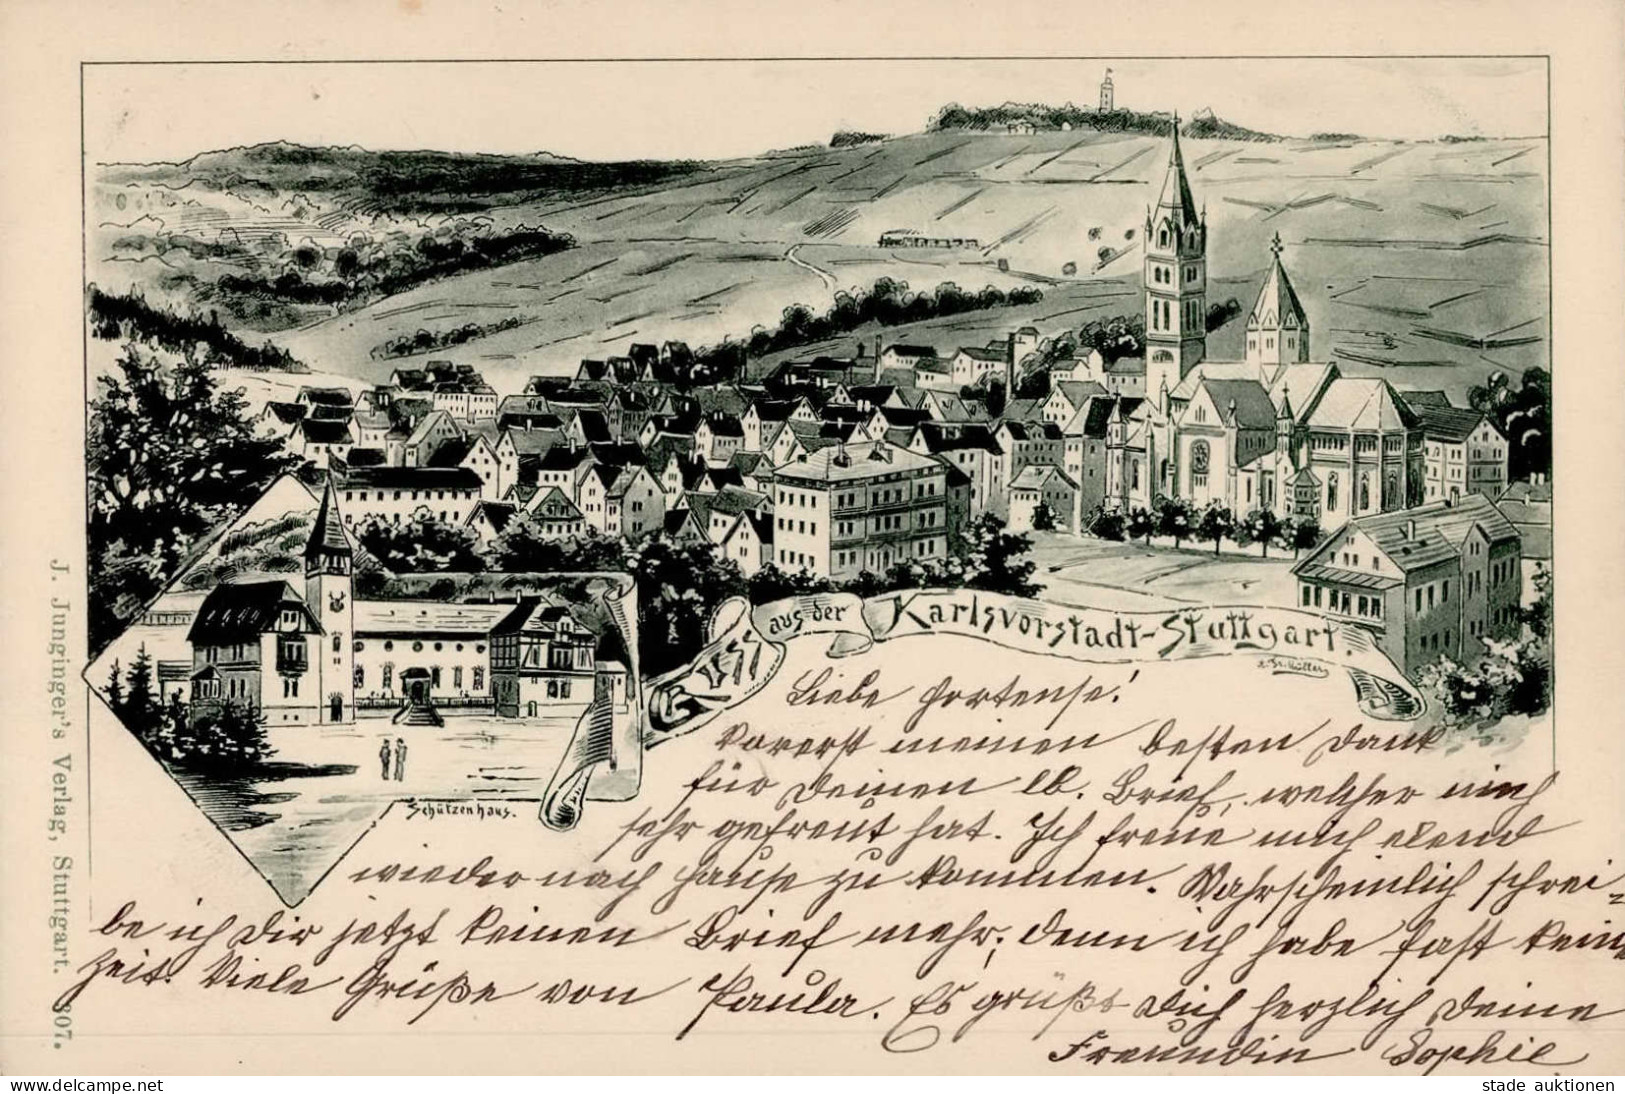 Gruss
aus der
Karlsvorstadt-Stuttgart.
Schützenhaus.
J. Junginger's Verlag, Stuttgart. 307.
Liebe Hortense!
Vorerst meinen besten Dank
für Deinen lb. Brief, welcher mich
sehr gefreut hat. Ich freue mich elend
wieder nach Hause zu kommen. Wahrscheinlich schrei-
be ich Dir jetzt keinen Brief mehr, denn ich habe fast keine
Zeit. Viele Grüße von Paula. Es grüßt Dich herzlich Deine
Freundin Sophie
stade auktionen